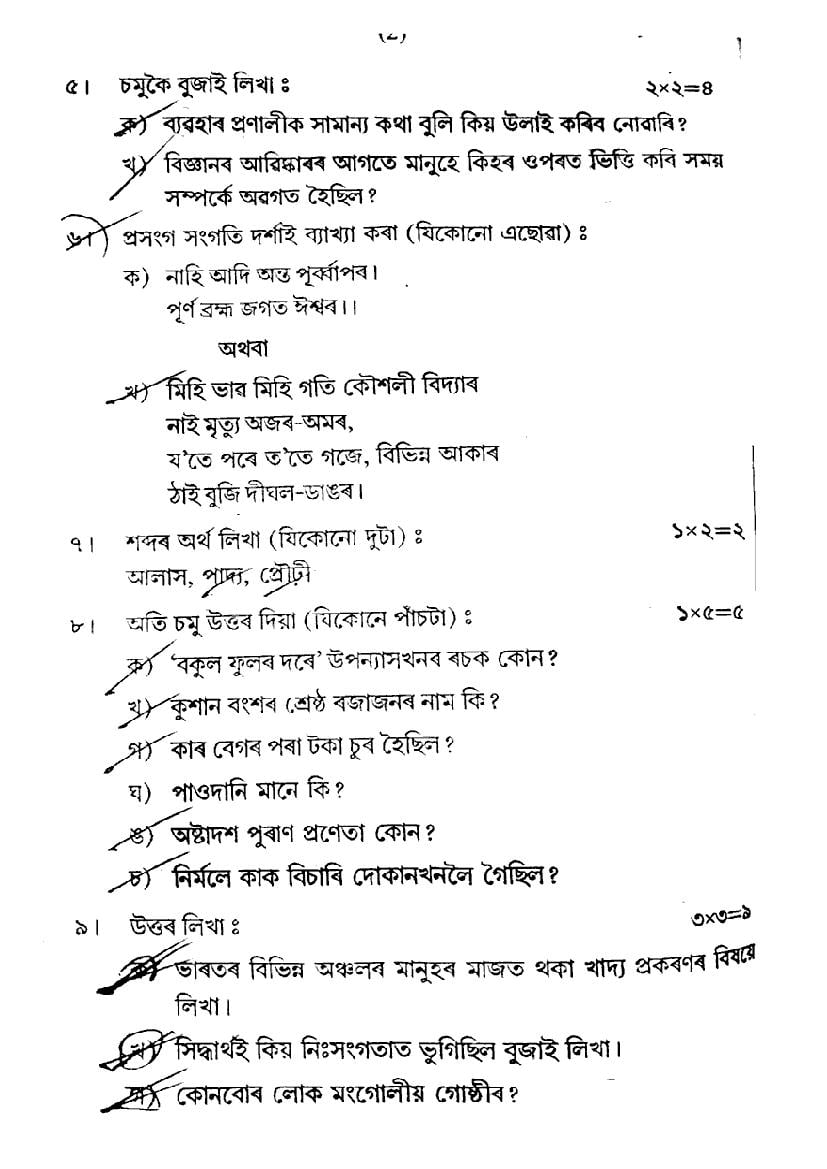 (2)
৫। চমুকৈ বুজাই লিখা ঃ ২×২=৪
ক) ব্যৱহাৰ প্ৰণালীক সামান্য কথা বুলি কিয় উলাই কৰিব নোৱাৰি?
খ) বিজ্ঞানৰ আৱিষ্কাৰৰ আগতে মানুহে কিহৰ ওপৰত ভিত্তি কৰি সময়
সম্পৰ্কে অৱগত হৈছিল?
৬। প্ৰসংগ সংগতি দৰ্শাই ব্যাখ্যা কৰা (যিকোনো এছোৱা) ঃ
ক) নাহি আদি অন্ত পূৰ্ব্বাপৰ।
পূৰ্ণ ব্ৰহ্ম জগত ঈশ্বৰ।।
অথবা
খ) মিহি ভাৱ মিহি গতি কৌশলী বিদ্যাৰ
নাই মৃত্যু অজৰ-অমৰ,
য'তে পৰে ত'তে গজে, বিভিন্ন আকাৰ
ঠাই বুজি দীঘল-ডাঙৰ।
৭। শব্দৰ অৰ্থ লিখা (যিকোনো দুটা) ঃ ১×২=২
আলাস, পাদ্য, প্ৰৌঢ়ী
৮। অতি চমু উত্তৰ দিয়া (যিকোনে পাঁচটা) ঃ ১×৫=৫
ক) 'বকুল ফুলৰ দৰে' উপন্যাসখনৰ ৰচক কোন?
খ) কুশান বংশৰ শ্ৰেষ্ঠ ৰজাজনৰ নাম কি?
গ) কাৰ বেগৰ পৰা টকা চুৰ হৈছিল?
ঘ) পাওদানি মানে কি?
ঙ) অষ্টাদশ পুৰাণ প্ৰণেতা কোন?
চ) নিৰ্মলে কাক বিচাৰি দোকানখনলৈ গৈছিল?
৯। উত্তৰ লিখা ঃ ৩×৩=৯
ক) ভাৰতৰ বিভিন্ন অঞ্চলৰ মানুহৰ মাজত থকা খাদ্য প্ৰকৰণৰ বিষয়ে
লিখা।
খ) সিদ্ধাৰ্থই কিয় নিঃসংগতাত ভুগিছিল বুজাই লিখা।
গ) কোনবোৰ লোক মংগোলীয় গোষ্ঠীৰ?